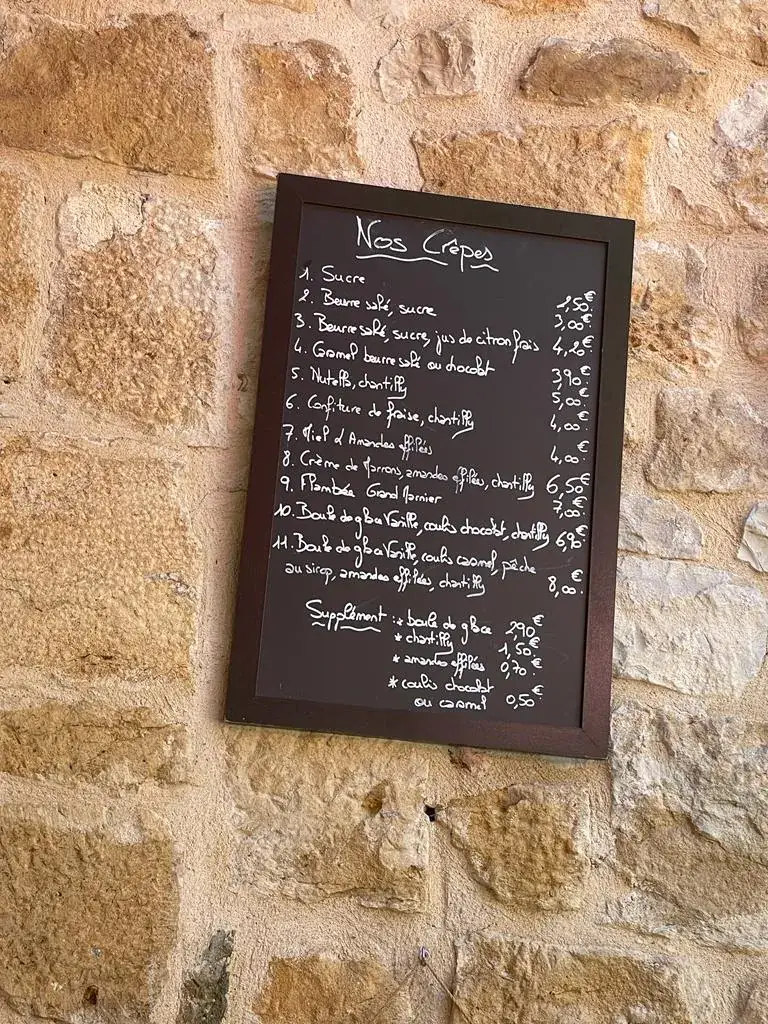 Nos Crêpes
1. Sucre 2,50€
2. Beurre salé, sucre 3,00€
3. Beurre salé, sucre, jus de citron frais 4,20€
4. Caramel beurre salé ou chocolat 3,90€
5. Nutella, chantilly 5,00€
6. Confiture de fraise, chantilly 4,00€
7. Miel d'Amandes effilées 4,00€
8. Crème de Marrons, amandes effilées, chantilly 6,50€
9. Flambée Grand Marnier 7,00€
10. Boule de glace Vanille, coulis chocolat, chantilly 6,90€
11. Boule de glace Vanille, coulis caramel, pêche
au sirop, amandes effilées, chantilly 8,00€
Supplément : * boule de glace 2,90€
* chantilly 1,50€
* amandes effilées 0,70€
* coulis chocolat
ou caramel 0,50€